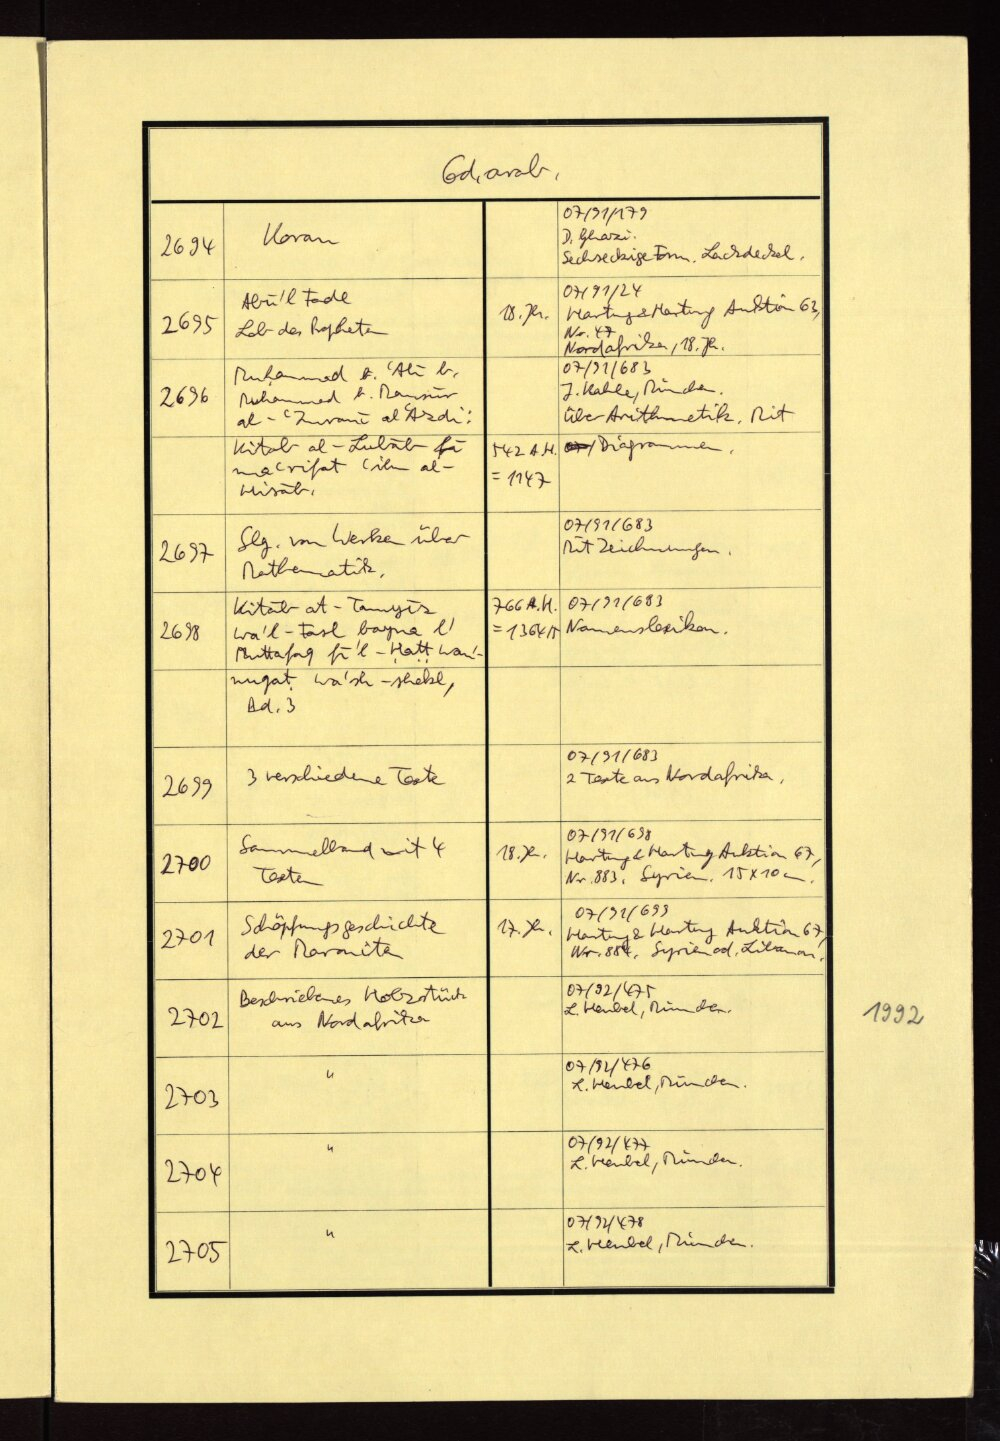 Cod. arab.
2694
Koran
07/91/179
D. Ghazi.
Sechseckige Form. Lackdeckel.
2695
Abū'l Fadl
Lob des Propheten
18. Jh.
07/91/24
Hartung & Hartung Auktion 63,
Nr. 47
Nordafrika, 18. Jh.
2696
Muḥammad b. ʿAlī b.
Muḥammad b. Manṣūr
al-ʿ al Azdi:
07/91/683
J. Kahle, München.
Über Arithmetik. Mit
Kitāb al-Lubāb fī
maʿrifat ʿilm al-
Hisāb.
542 A.H.
= 1147
Diagrammen.
2697
Slg. von Werken über
Mathematik.
07/91/683
Mit Zeichnungen.
2698
Kitāb at-Tamyīz
wa'l-Fasl bayna l'
Muttafaq fī'l-Ḫaṭṭ wan'-
766 A.H.
= 1364/5
07/91/683
Namenslexikon.
nuqaṭ wa'sh-shekl,
Bd. 3
2699
3 verschiedene Texte
07/91/683
2 Texte aus Nordafrika.
2700
Sammelband mit 4
Texten
18. Jh.
07/91/698
Hartung & Hartung Auktion 67,
Nr. 883. Syrien. 15 x 10 cm.
2701
Schöpfungsgeschichte
der Maroniten
17. Jh.
07/91/699
Hartung & Hartung Auktion 67,
Nr. 884. Syrien od. Libanon.
2702
Beschriebenes Holzstück
aus Nordafrika
07/92/475
L. Henbel, München.
1992
2703
"
07/92/476
L. Henbel, München.
2704
"
07/92/477
L. Henbel, München.
2705
"
07/92/478
L. Henbel, München.